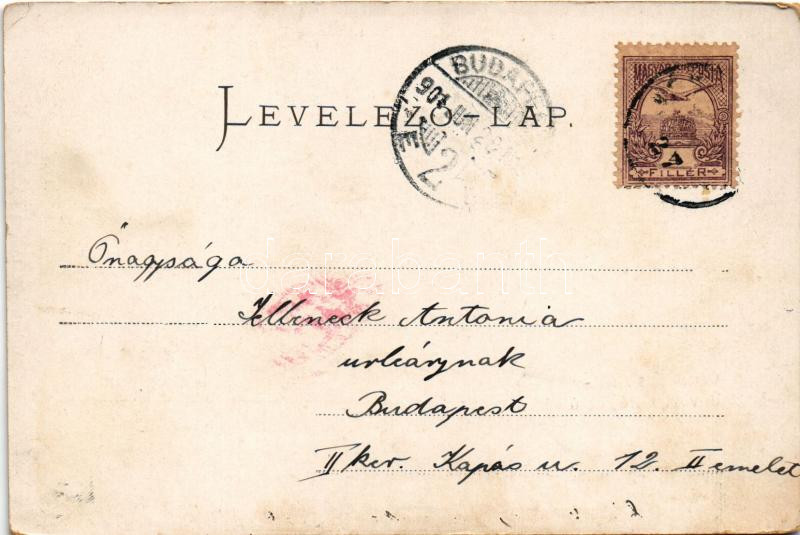 BUDAPEST
901 JUN 2
MAGYAR POSTA
LEVELEZŐ-LAP.
FILLÉR
Őnagysága
darabanth
Jellineck Antonia
urleánynak
Budapest
II ker. Kapás u. 12. II emelet